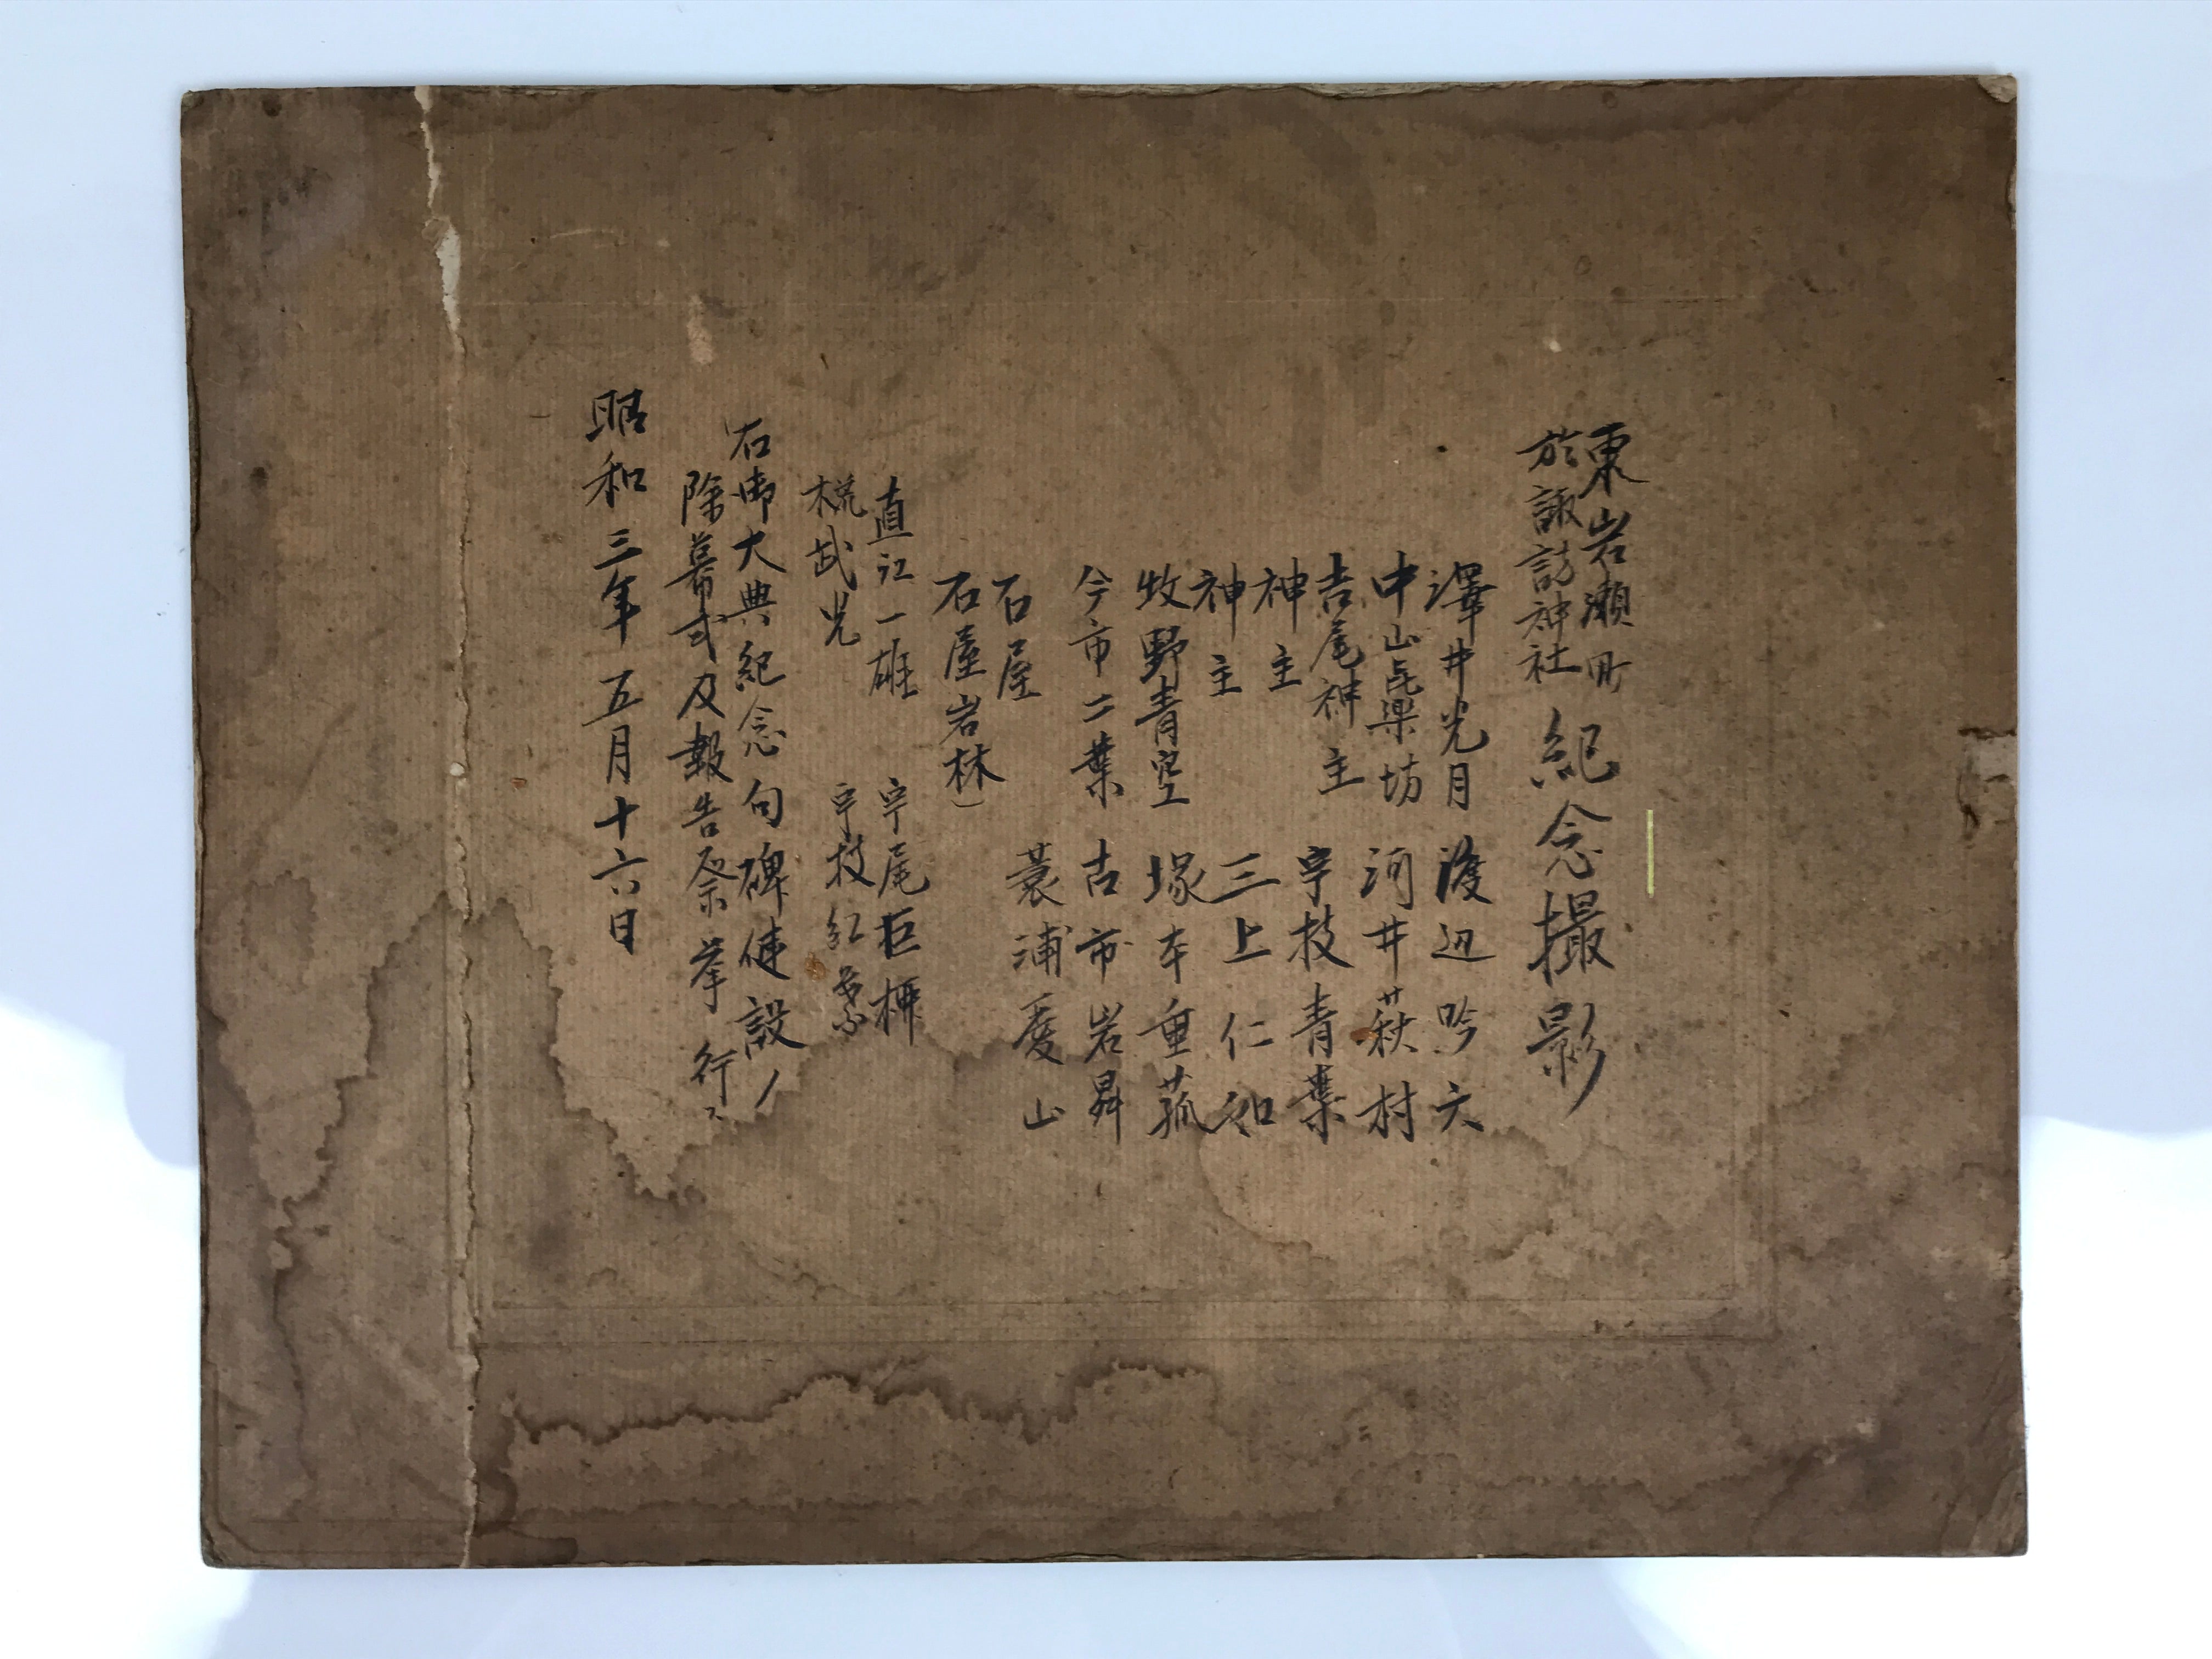 東岩瀬町
於諏訪神社
紀念撮影
澤井光月 渡辺吟六
中山民樂坊 河井萩村
吉尾神主 宇枝青葉
神主 三上仁和
神主 塚本重菰
牧野青空 古市岩昇
今市二葉 蓑浦愛山
石屋
石屋岩林
直江一雄 宇尾巨
武光 宇枝紅葉
右御大典紀念句碑建設ノ
除幕式及報告祭挙行
昭和三年五月十六日